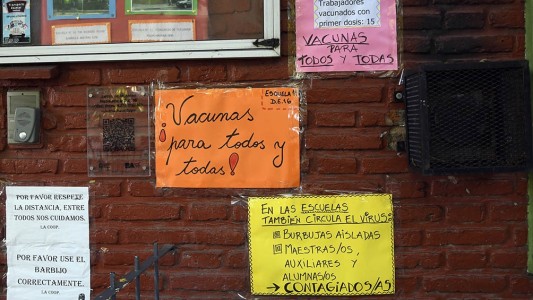 Trabajadores
vacunados con
primer dosis: 15
VACUNAS
PARA
TODOS Y TODAS
ESCUELA
D.E.16
¡Vacunas
para todos y
todas!
POR FAVOR RESPETE
LA DISTANCIA, ENTRE
TODOS NOS CUIDAMOS.
LA COOP.
POR FAVOR USE EL
BARBIJO
CORRECTAMENTE.
LA COOP.
EN LAS ESCUELAS
TAMBIÉN CIRCULA EL VIRUS:
BURBUJAS AISLADAS
MAESTRAS/OS,
AUXILIARES Y
ALUMNAS/OS
→ CONTAGIADOS/AS